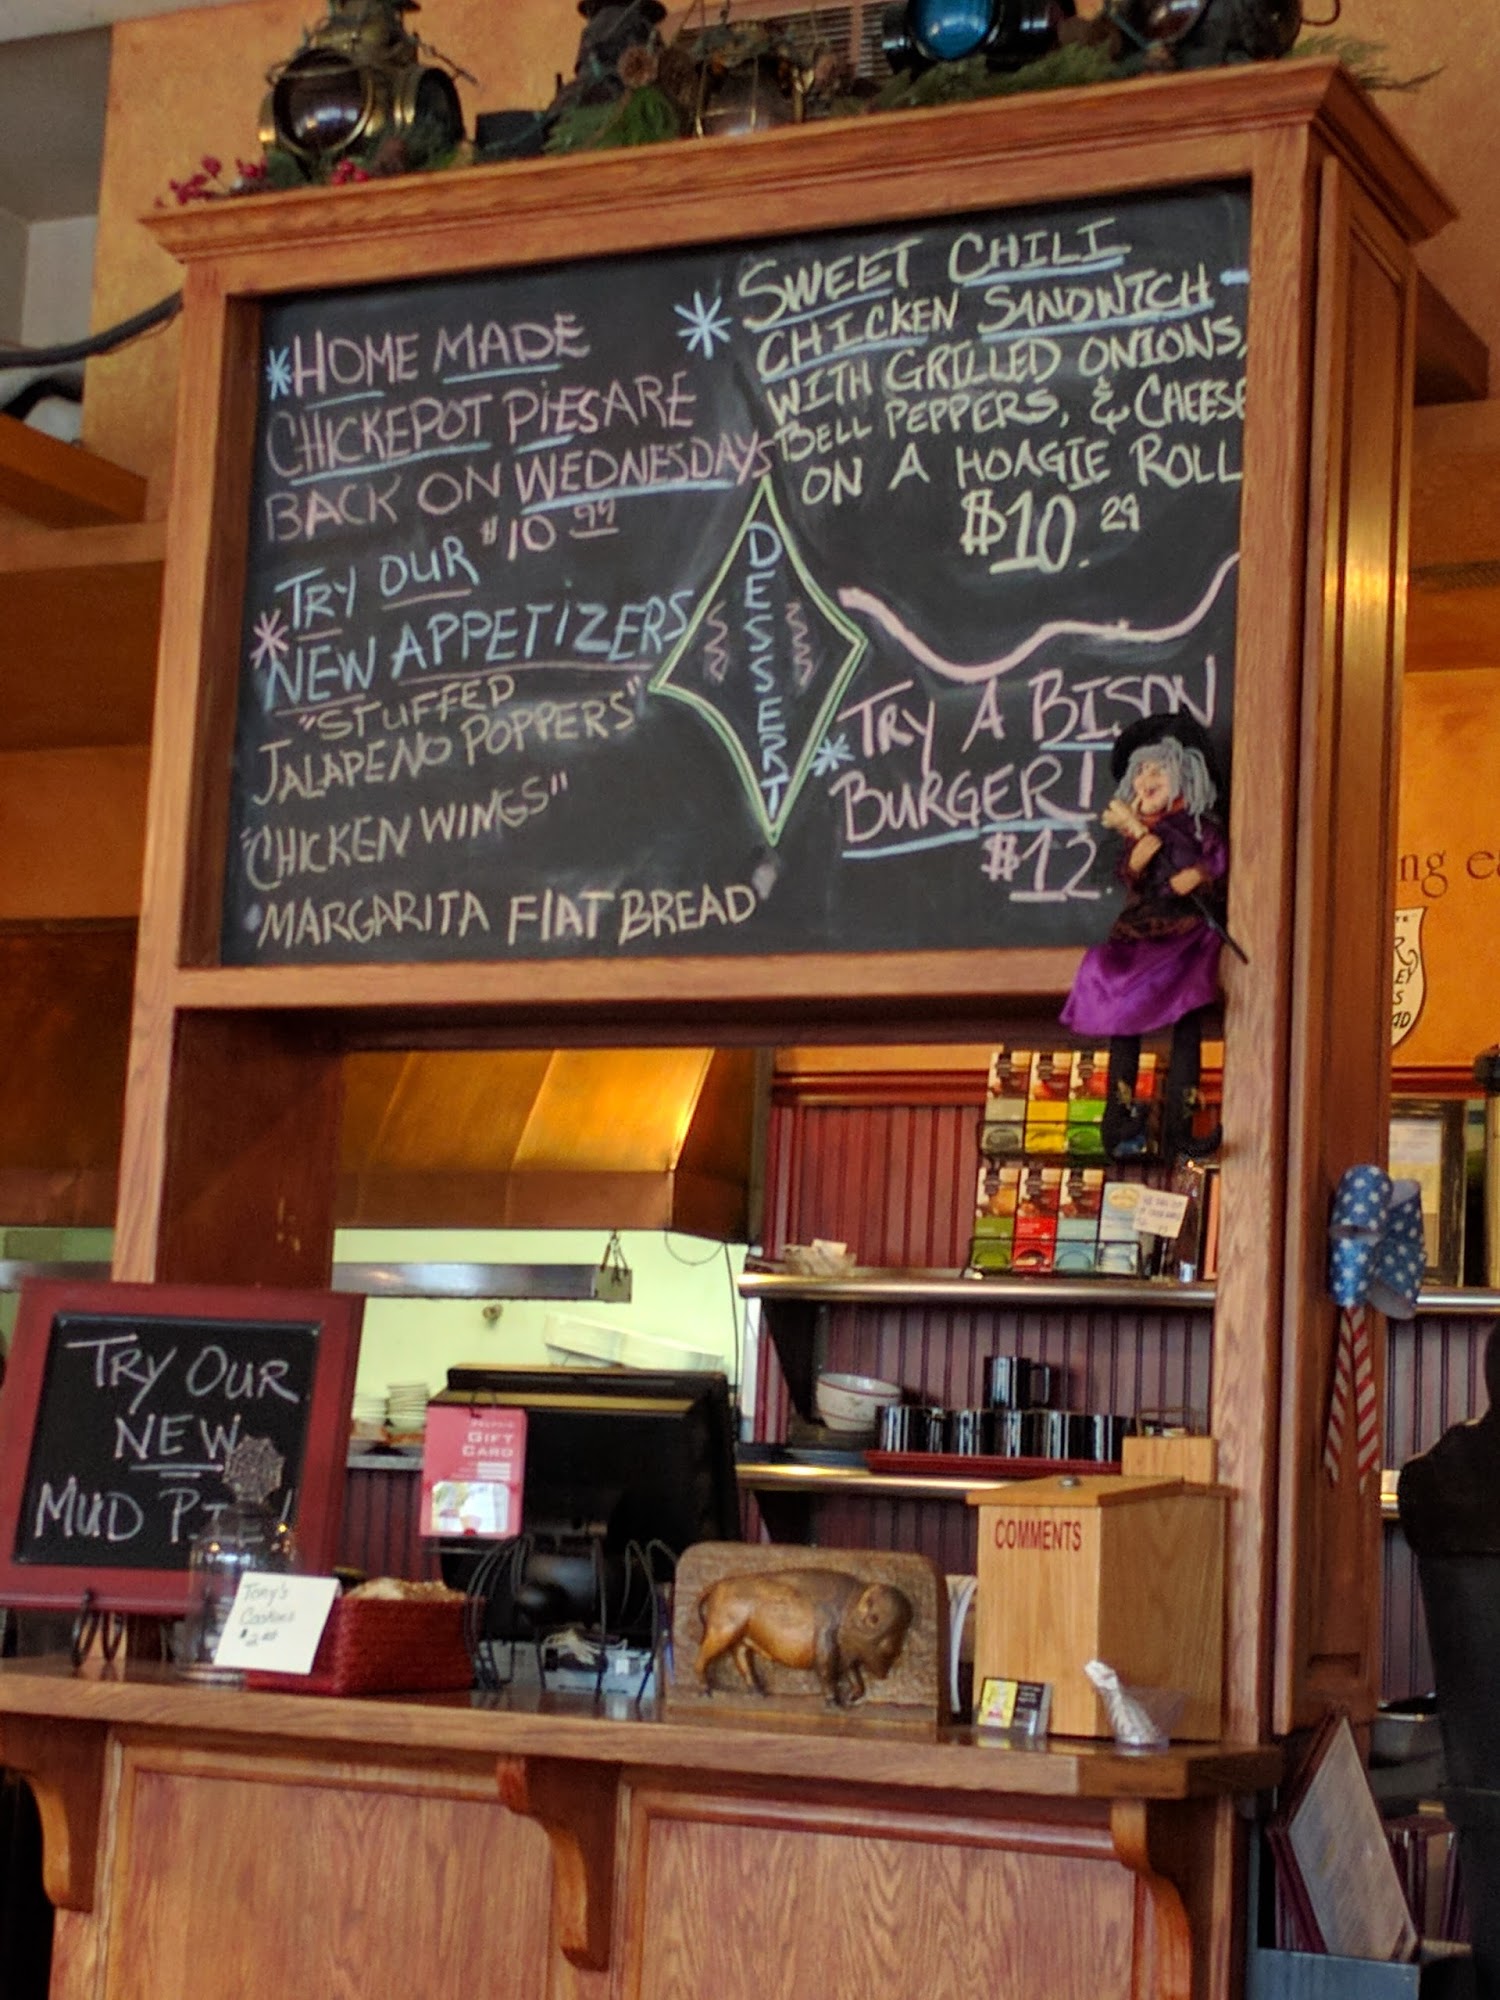 *HOME MADE
CHICKEPOT PiES ARE
BACK ON WEDNESDAYS
$10 99
TRY OUR
*NEW APPETiZERS
"STUFFED
JALAPENO POPPERS"
"CHICKEN WINGS"
MARGARITA FlAT BREAD
DESSERT
*SWEET CHILI
CHICKEN SANDWICH-
WITH GRILLED ONIONS,
BELL PEPPERS, & CHEESE
ON A HOAGIE ROLL
$10.29
*TRY A BISON
BURGER!
$12.
ng ea
TRY OUR
NEW
MUD PIE!
GIFT
CARD
COMMENTS
Tony's
Cookies